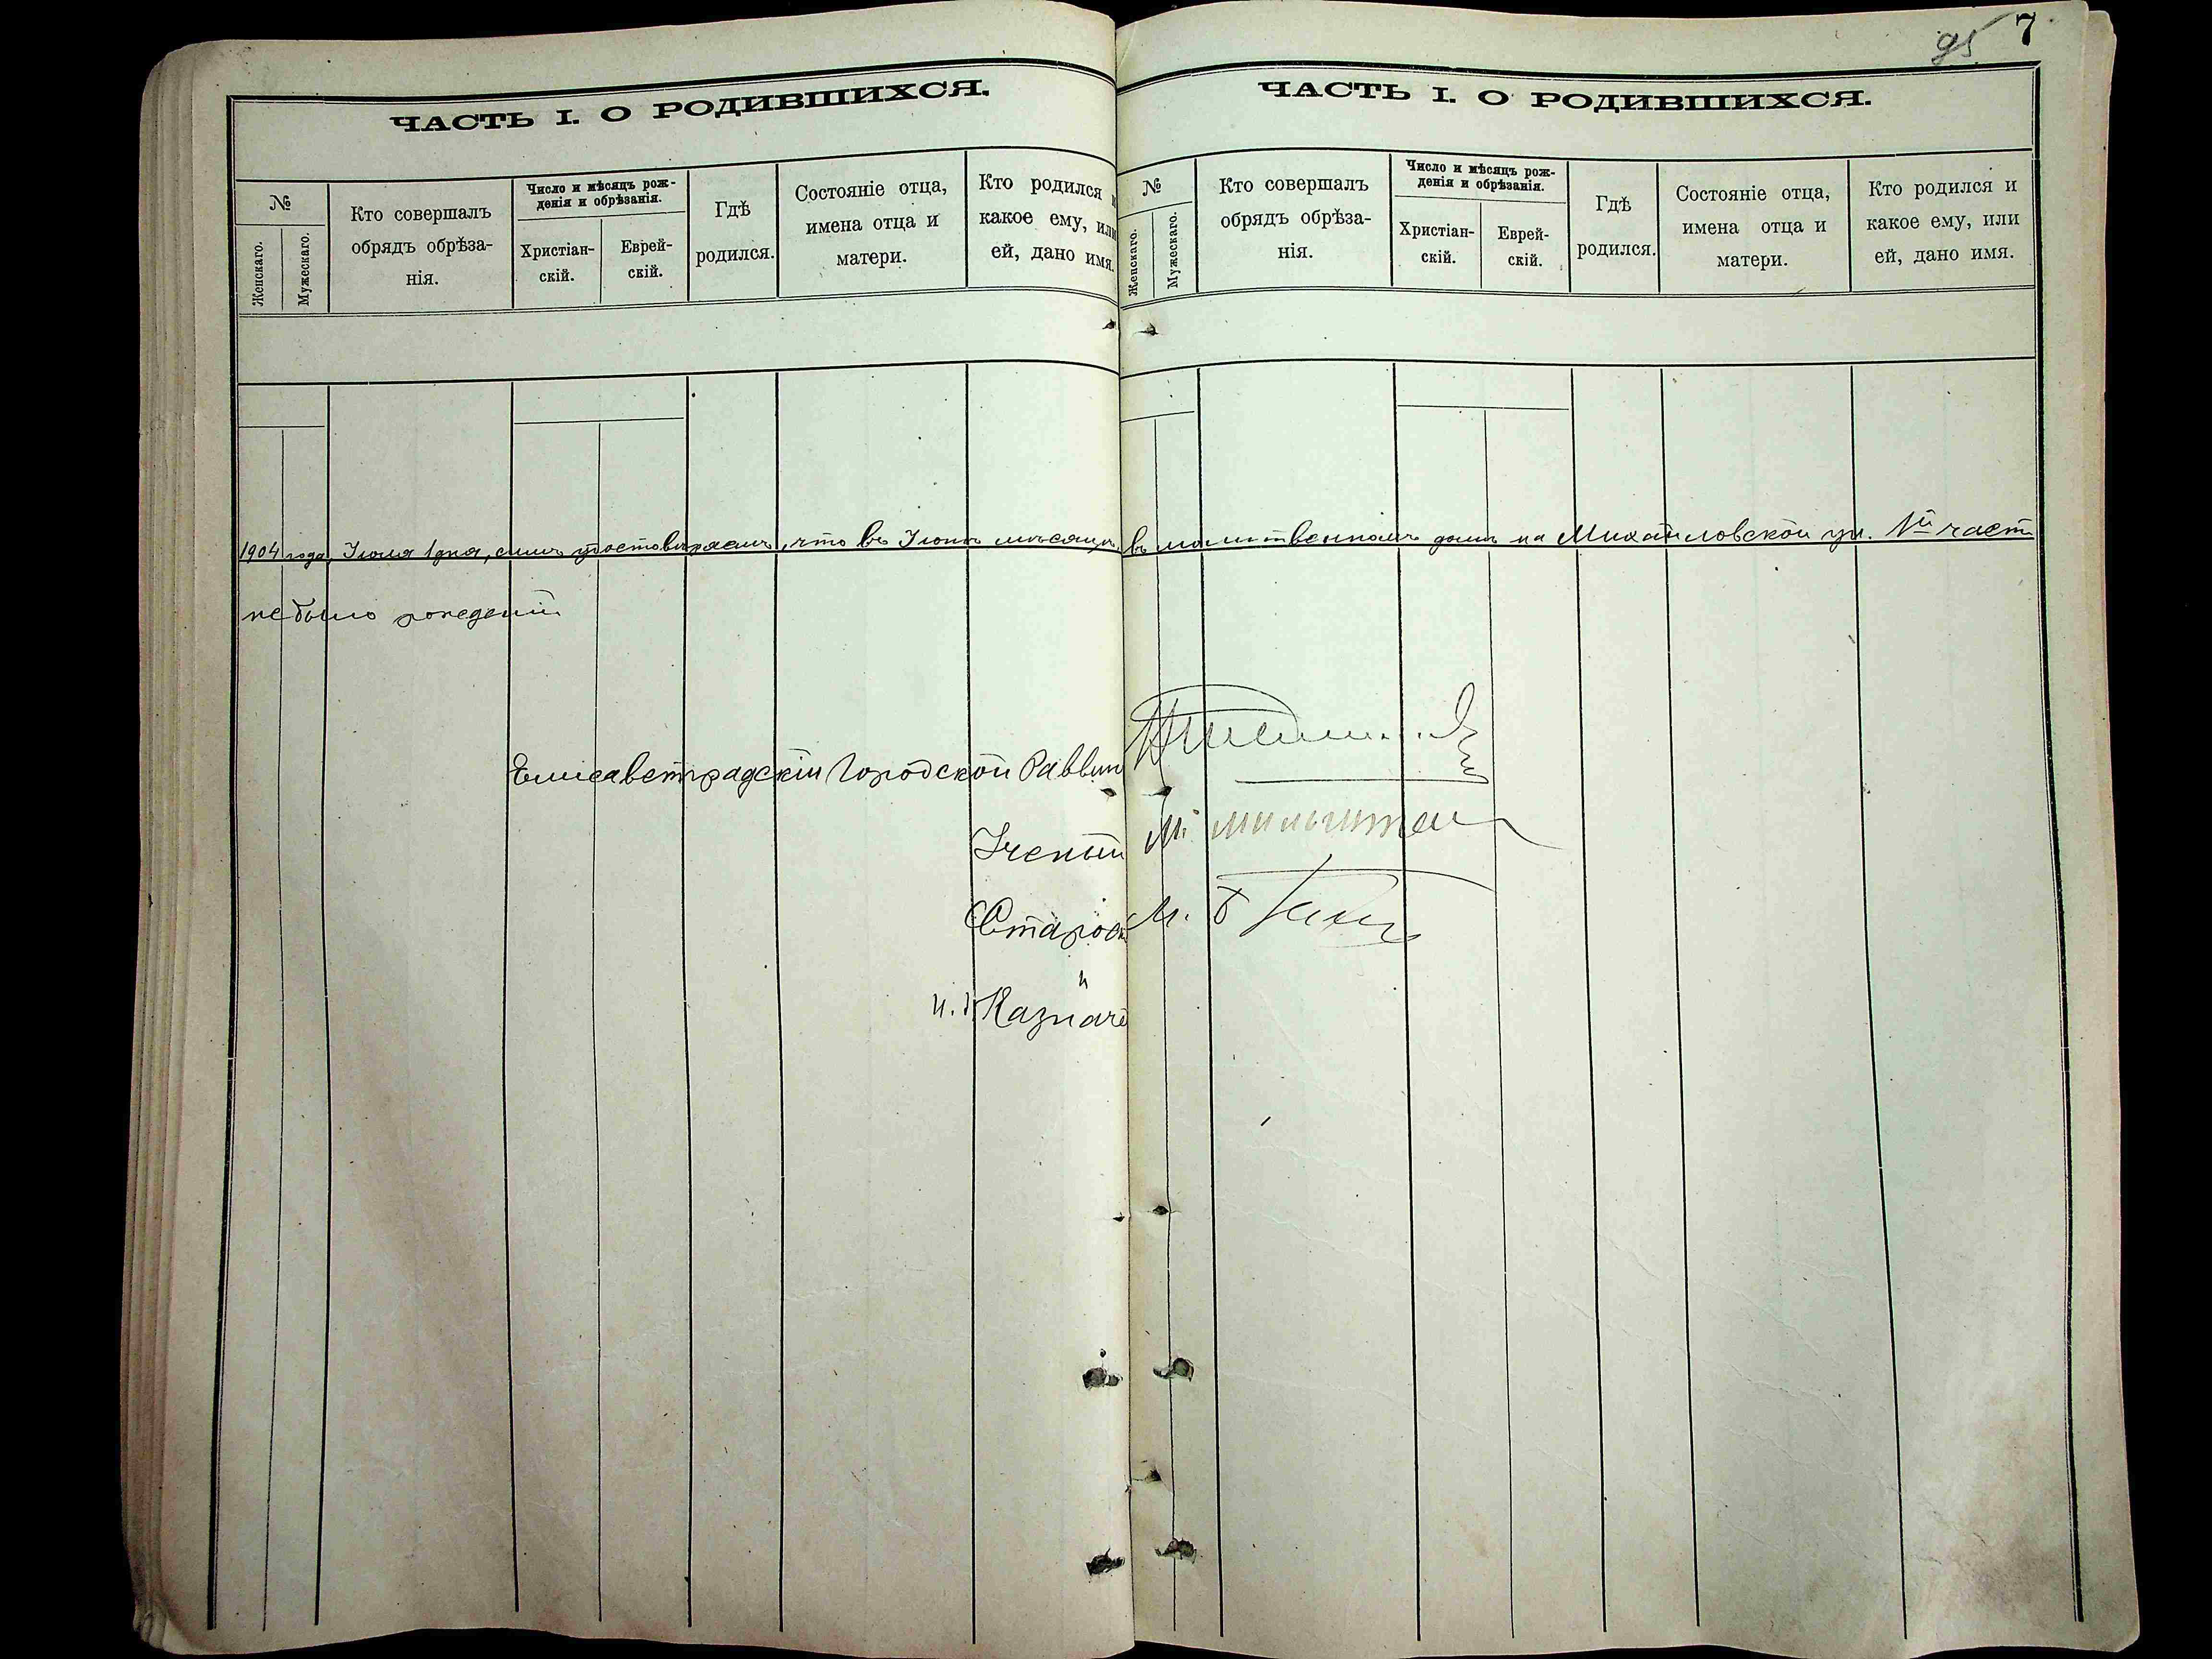 95 7
ЧАСТЬ I. О РОДИВШИХСЯ.
№
Женскаго.
Мужескаго.
Кто совершалъ
обрядъ обрѣза-
нія.
Число и мѣсяцъ рож-
денія и обрѣзанія.
Христіан-
скій.
Еврей-
скій.
Гдѣ
родился.
Состояніе отца,
имена отца и
матери.
Кто родился и
какое ему, или
ей, дано имя.
ЧАСТЬ I. О РОДИВШИХСЯ.
№
Женскаго.
Мужескаго.
Кто совершалъ
обрядъ обрѣза-
нія.
Число и мѣсяцъ рож-
денія и обрѣзанія.
Христіан-
скій.
Еврей-
скій.
Гдѣ
родился.
Состояніе отца,
имена отца и
матери.
Кто родился и
какое ему, или
ей, дано имя.
1904 года, Іюля 1 дня, симъ удостовѣряемъ, что въ Іюнѣ мѣсяцѣ въ молитвенномъ домѣ на Михайловской ул. 1й части
не было рожденій
Елисаветградскій Городской Раввин
Ученый М.
Старост М. Б
и. д. Казначей